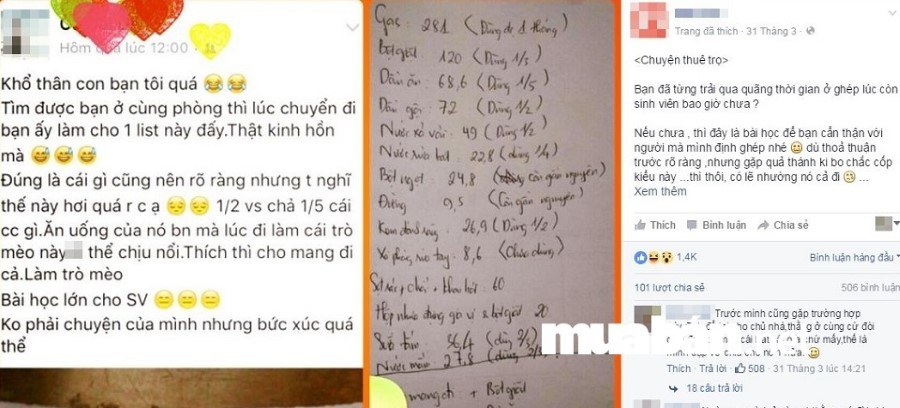 Hôm qua lúc 12:00
Khổ thân con bạn tôi quá 😂😂
Tìm được bạn ở cùng phòng thì lúc chuyển đi
bạn ấy làm cho 1 list này đấy.Thật kinh hồn
mà 😅😅😅
Đúng là cái gì cũng nên rõ ràng nhưng t nghĩ
thế này hơi quá r c ạ 😔😔 1/2 vs chả 1/5 cái
cc gì.Ăn uống của nó bn mà lúc đi làm cái trò
mèo này thể chịu nổi.Thích thì cho mang đi
cả.Làm trò mèo
Bài học lớn cho SV 😑😑😑
Ko phải chuyện của mình nhưng bức xúc quá
thể
Gas: 281 (Dùng đc 1 tháng)
Bột giặt 120 (Dùng 1/3)
Dầu ăn: 68,6 (Dùng 1/5)
Dầu gội: 72 (Dùng 1/2)
Nước xả vải: 49 (Dùng 1/2)
Nước rửa bát: 22,8 (dùng 1/4)
Bột ngọt: 24,8 (Còn gần nguyên)
Đường 9,5 (Còn gần nguyên)
Kem đánh răng: 26,9 (Dùng 1/2)
Xà phòng rửa tay: 8,6 (Chưa dùng)
60
Hộp nhựa đựng gia vị & bột giặt 20
36,4 (dùng 2/3)
Nước mắm: 27,8
+ Bột giặt
mua
Trang đã thích · 31 Tháng 3 ·
<Chuyện thuê trọ>
Bạn đã từng trải qua quãng thời gian ở ghép lúc còn
sinh viên bao giờ chưa ?
Nếu chưa , thì đây là bài học để bạn cẩn thận với
người mà mình định ghép nhé 😀 dù thoả thuận
trước rõ ràng ,nhưng gặp quả thánh kí bo chắc cốp
kiểu này ...thì thôi, có lẽ nhường nó cả đi 😥 ...
Xem thêm
Thích Bình luận Chia sẻ
1,4K Bình luận hàng đầu
101 lượt chia sẻ 506 bình luận
Trước mình cũng gặp trường hợp
cho chủ nhà,thằng ở cùng cứ đòi
Thích · Trả lời · 508 · 31 Tháng 3 lúc 14:21
18 câu trả lời